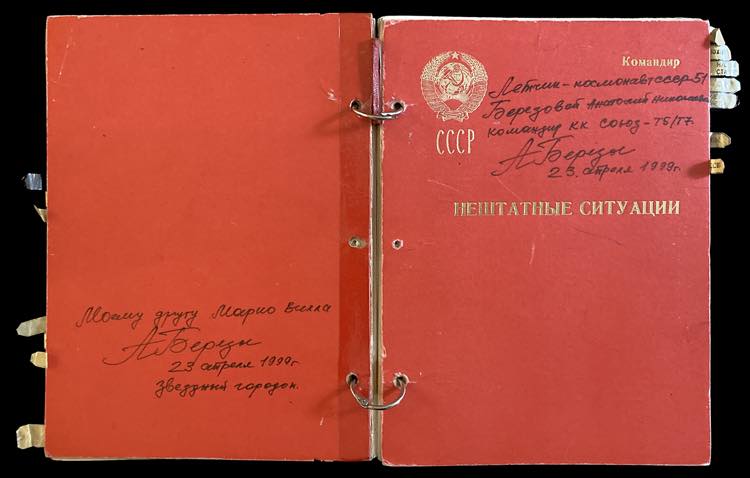 Моему другу Марио Вилла
А Березы
23 апреля 1999г.
Звездный городок.
Командир
СССР
Летчик-космонавт СССР-51
Березовой Анатолий Николаевич
командир КК Союз-Т5/Т7.
А Березы
23. апреля 1999г.
НЕШТАТНЫЕ СИТУАЦИИ